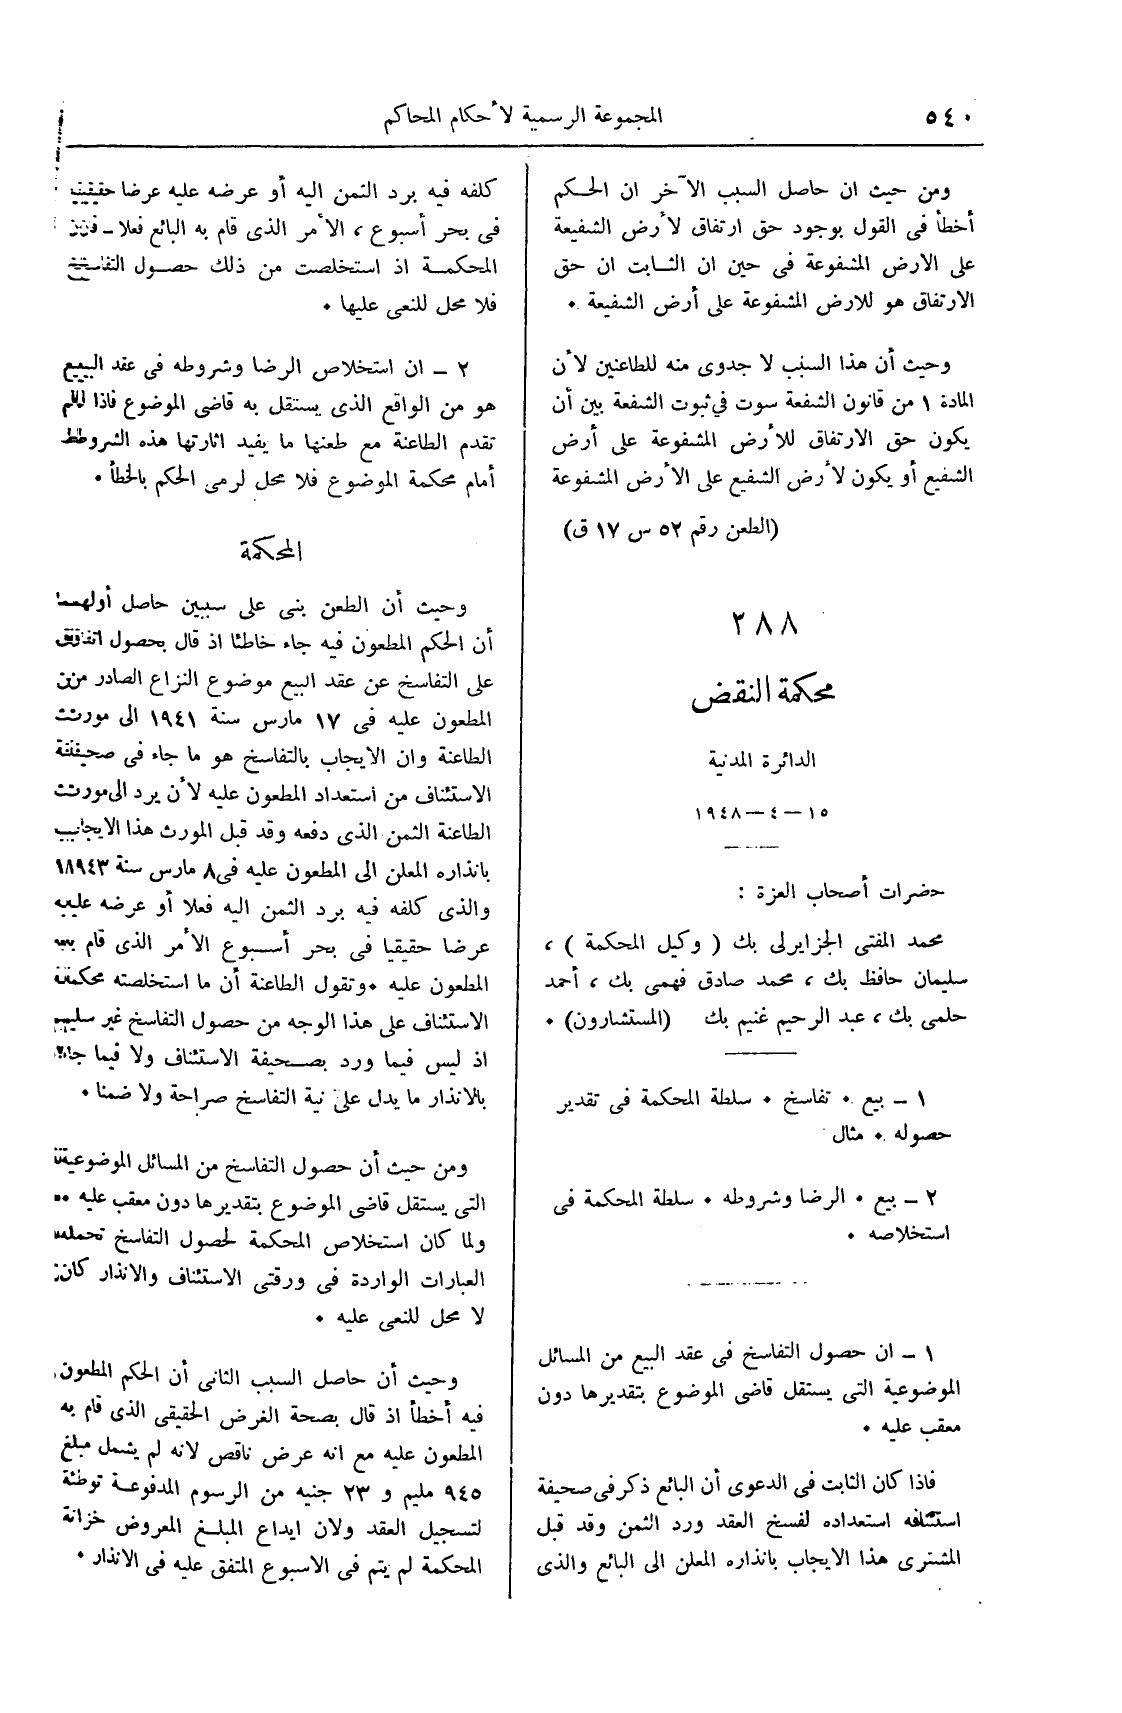 ٥٤٠
المجموعة الرسمية لأحكام المحاكم
ومن حيث ان حاصل السبب الآخر ان الحكم
أخطأ فى القول بوجود حق ارتفاق لأرض الشفيعة
على الارض المشفوعة فى حين ان الثابت ان حق
الارتفاق هو للارض المشفوعة على أرض الشفيعة .
وحيث أن هذا السبب لا جدوى منه للطاعنين لأن
المادة ١ من قانون الشفعة سوت فى ثبوت الشفعة بين أن
يكون حق الارتفاق للأرض المشفوعة على أرض
الشفيع أو يكون لأرض الشفيع على الأرض المشفوعة
(الطعن رقم ٥٢ س ١٧ ق)
٢٨٨
محكمة النقض
الدائرة المدنية
١٥ — ٤ — ١٩٤٨
حضرات أصحاب العزة :
محمد المفتى الجزايرلى بك ( وكيل المحكمة ) ،
سليمان حافظ بك ، محمد صادق فهمى بك ، أحمد
حلمى بك ، عبد الرحيم غنيم بك (المستشارون) .
١ ـ بيع . تفاسخ . سلطة المحكمة فى تقدير
حصوله . مثال
٢ ـ بيع . الرضا وشروطه . سلطة المحكمة فى
استخلاصه .
١ ـ ان حصول التفاسخ فى عقد البيع من المسائل
الموضوعية التى يستقل قاضى الموضوع بتقديرها دون
معقب عليه .
فاذا كان الثابت فى الدعوى أن البائع ذكر فى صحيفة
استئنافه استعداده لفسخ العقد ورد الثمن وقد قبل
المشترى هذا الايجاب بانذاره المعلن الى البائع والذى
كلفه فيه برد الثمن اليه أو عرضه عليه عرضا حقيقيا
فى بحر أسبوع ، الأمر الذى قام به البائع فعلا ـ فان
المحكمة اذ استخلصت من ذلك حصول التفاسخ
فلا محل للنعى عليها .
٢ ـ ان استخلاص الرضا وشروطه فى عقد البيع
هو من الواقع الذى يستقل به قاضى الموضوع فاذا لم
تقدم الطاعنة مع طعنها ما يفيد اثارتها هذه الشروط
أمام محكمة الموضوع فلا محل لرمى الحكم بالخطأ .
المحكمة
وحيث أن الطعن بنى على سببين حاصل أولهما
أن الحكم المطعون فيه جاء خاطئا اذ قال بحصول اتفاق
على التفاسخ عن عقد البيع موضوع النزاع الصادر من
المطعون عليه فى ١٧ مارس سنة ١٩٤١ الى مورث
الطاعنة وان الايجاب بالتفاسخ هو ما جاء فى صحيفة
الاستئناف من استعداد المطعون عليه لأن يرد الى مورث
الطاعنة الثمن الذى دفعه وقد قبل المورث هذا الايجاب
بانذاره المعلن الى المطعون عليه فى ٨ مارس سنة ١٩٤٣
والذى كلفه فيه برد الثمن اليه فعلا أو عرضه عليه
عرضا حقيقيا فى بحر أسبوع الأمر الذى قام به
المطعون عليه . وتقول الطاعنة أن ما استخلصته محكمة
الاستئناف على هذا الوجه من حصول التفاسخ غير سليم
اذ ليس فيما ورد بصحيفة الاستئناف ولا فيما جاء
بالانذار ما يدل على نية التفاسخ صراحة ولا ضمنا .
ومن حيث أن حصول التفاسخ من المسائل الموضوعية
التى يستقل قاضى الموضوع بتقديرها دون معقب عليه .
ولما كان استخلاص المحكمة لحصول التفاسخ تحمله
العبارات الواردة فى ورقتى الاستئناف والانذار كان
لا محل للنعى عليه .
وحيث أن حاصل السبب الثانى أن الحكم المطعون
فيه أخطأ اذ قال بصحة الغرض الحقيقى الذى قام به
المطعون عليه مع انه عرض ناقص لانه لم يشمل مبلغ
٩٤٥ مليم و ٢٣ جنيه من الرسوم المدفوعة توطئة
لتسجيل العقد ولان ايداع المبلغ المعروض خزانة
المحكمة لم يتم فى الاسبوع المتفق عليه فى الانذار .